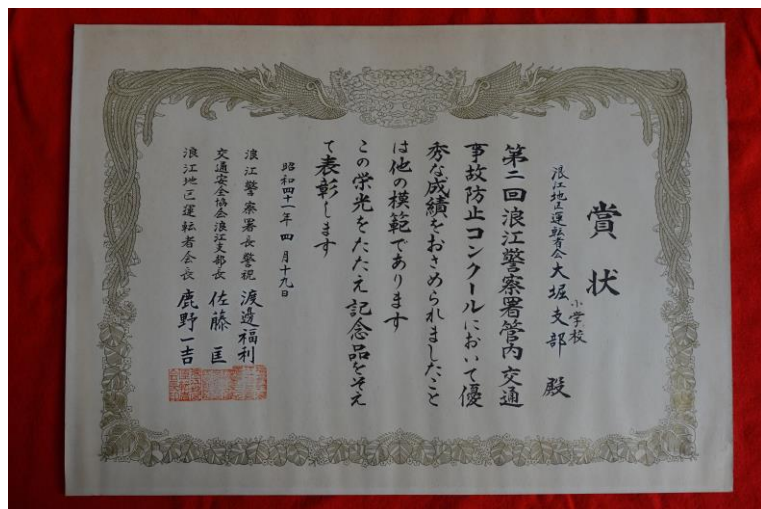 賞状
浪江地区運転者会大堀支部 殿
小学校
第二回浪江警察署管内交通
事故防止コンクールにおいて優
秀な成績をおさめられましたこと
は他の模範であります
この栄光をたたえ記念品をそえ
て表彰します
昭和四十一年四月十九日
浪江警察署長警視 渡邊福利
交通安全協会浪江支部長 佐藤匡
浪江地区運転者会長 鹿野一吉